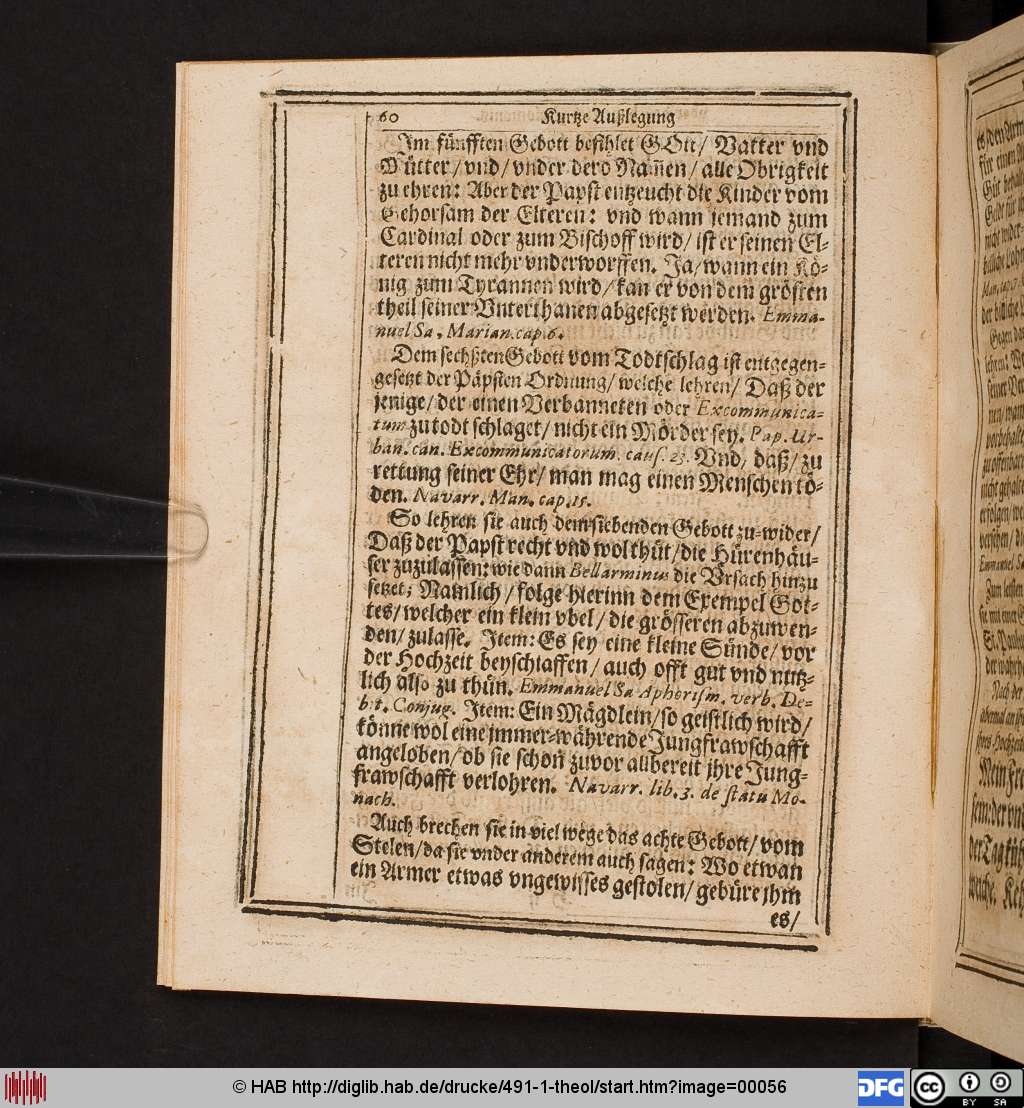 60 Kurtze Außlegung
Im fünfften Gebott befihlet GOtt/ Vatter vnd
Mütter/ vnd/ vnder dero Nam̃en/ alle Obrigkeit
zu ehren: Aber der Papst entzeucht die Kinder vom
Gehorsam der Elteren: vnd wann jemand zum
Cardinal oder zum Bischoff wird/ ist er seinen El-
teren nicht mehr vnderworffen. Ja/ wann ein Kö-
nig zum Tyrannen wird/ kan er von dem grösten
theil seiner Vnterthanen abgesetzt werden. Emma-
nuel Sa, Marian. cap. 6.
Dem sechßten Gebott vom Todtschlag ist entgegen-
gesetzt der Päpsten Ordnung/ welche lehren/ Daß der
jenige/ der einen Verbanneten oder Excommunica-
tum zu todt schlaget/ nicht ein Mörder sey. Pap. Ur-
ban. can. Excommunicatorum. caus. 23. Vnd, daß/ zu
rettung seiner Ehr/ man mag einen Menschen tö-
den. Navarr. Man. cap. 15.
So lehren sie auch dem siebenden Gebott zu-wider/
Daß der Papst recht vnd wol thüt/ die Hürenhäu-
ser zuzulassen: wie dann Bellarminus die Vrsach hinzu
setzet; Nämlich/ folge hierinn dem Exempel Got-
tes/ welcher ein klein vbel/ die grösseren abzuwen-
den/ zulasse. Item: Es sey eine kleine Sünde/ vor
der Hochzeit beyschlaffen/ auch offt gut vnd nutz-
lich also zu thün. Emmanuel Sa Aphorism. verb. De-
bit. Conjug. Item: Ein Mägdlein/ so geistlich wird/
könne wol eine jmmer-währende Jungfrawschafft
angeloben/ ob sie schon zuvor allbereit jhre Jung-
frawschafft verlohren. Navarr. lib. 3. de statu Mo-
nach.
Auch brechen sie in viel wege das achte Gebott/ vom
Stelen/ da sie vnder anderem auch sagen: Wo etwan
ein Armer etwas vngewisses gestolen/ gebüre jhm
es/
© HAB http://diglib.hab.de/drucke/491-1-theol/start.htm?image=00056
DFG
cc BY SA